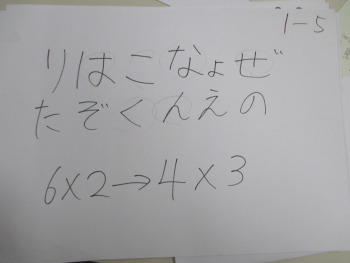 1-5
りはこなょぜ
たぞくんえの
6×2→4×3